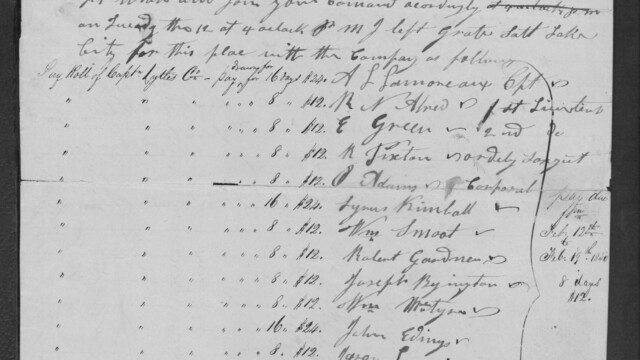 and join your Comand acordingly
on Tuesday the 12 at 4 oclock P M I left Grate Salt Lake
City for this place with the Company as follows
Pay Roll of Capt Lyttles Co - Pay for 16 Days $24. A L Lamoreaux Cpt
" " " " 8 " $12. R N Alred 1st Lieutent
" " " " 8 " $12. E Green 2nd do
" " " " 8 " $12. R Sixton ordely Sargent
" " " " 8 " $12. O Adams Corporal
" " " " 16 " $24. Cyrus Kimball
" " " " 8 " $12. Wm Smoot
" " " " 8 " $12. Robert Gardner
" " " " 8 " $12. Joseph Byington
" " " " 8 " $12. Wm
" " " " 16 " $24. John
" " " " 8 " $12.
pay due
from
Feby 12th
Feb. 19th
8 days
$12.